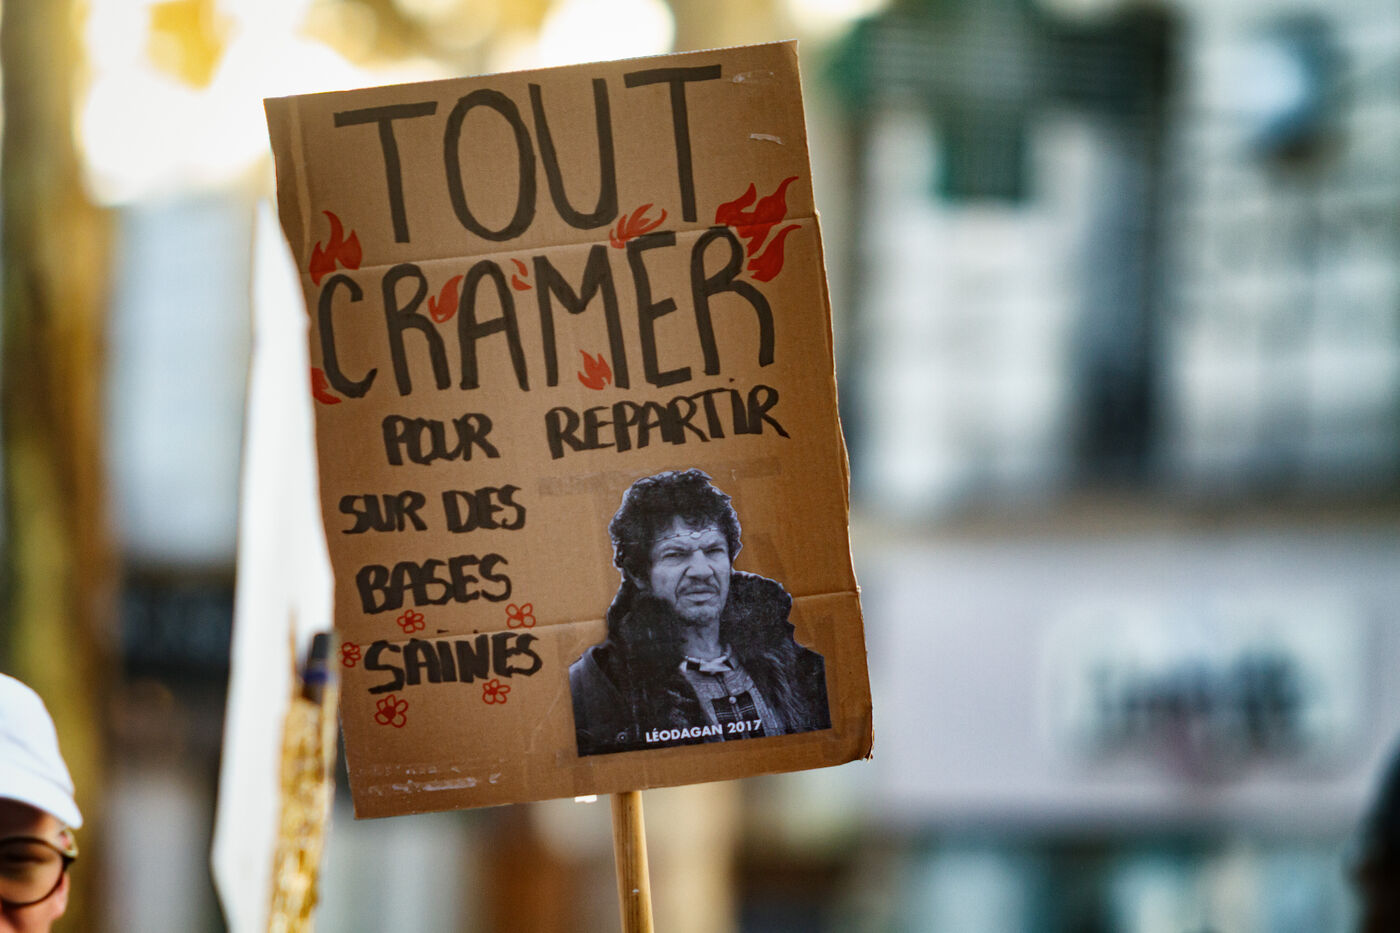 TOUT
CRAMER
POUR REPARTIR
SUR DES
BASES
SAINES
LÉODAGAN 2017